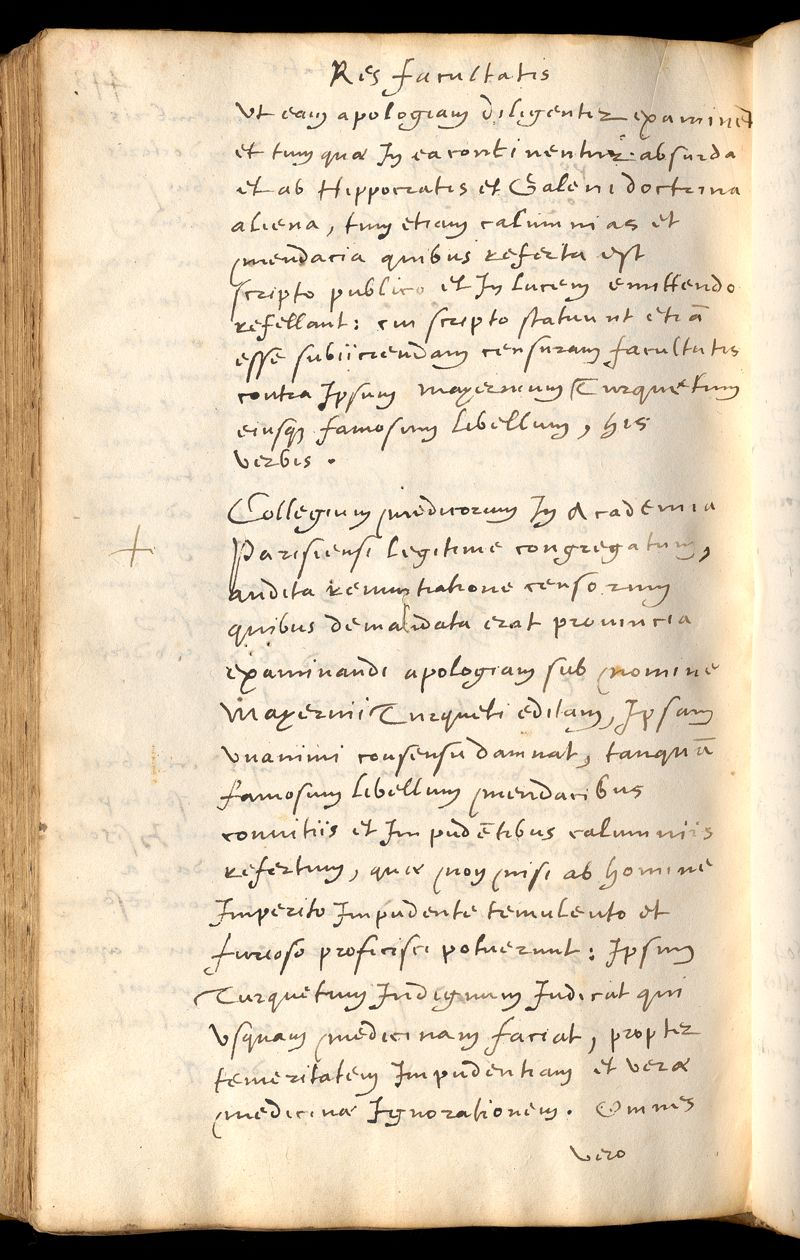 Res facultatis
Vt eam apologiam diligenter examinet
et tum quæ In ea continentur absurda
et ab Hippocratis et Galeni doctrina
aliena, tum etiam calumnias et
mendacia quibus referta est
scripto publico et In lucem emittendo
refellant: cui scripto statuunt etiā
esse subiiciendam censuram facultatis
contra Ipsum Mayernium Turquetum
eiusq famosum libellum, his
verbis.
Collegium medicorum In Academia
Parisiensi legitime congregatum,
audita renuntiatione censorum
quibus demandata erat prouincia
examinandi apologiam sub nomine
Mayernii Turqueti editam, Ipsam
vnanimi consensu damnat, tanquā
famosum libellum mendacibus
conuitiis et Impudētibus calumniis
refertum, quæ non nisi ab homine
Imperito Impudente temulento et
furioso proficisci potuerunt: Ipsum
Turquetum Indignum Iudicat qui
vsquam medicinam faciat, propter
temeritatem Impudentiam et veræ
medicinæ Ignorationem. Omnes
vero